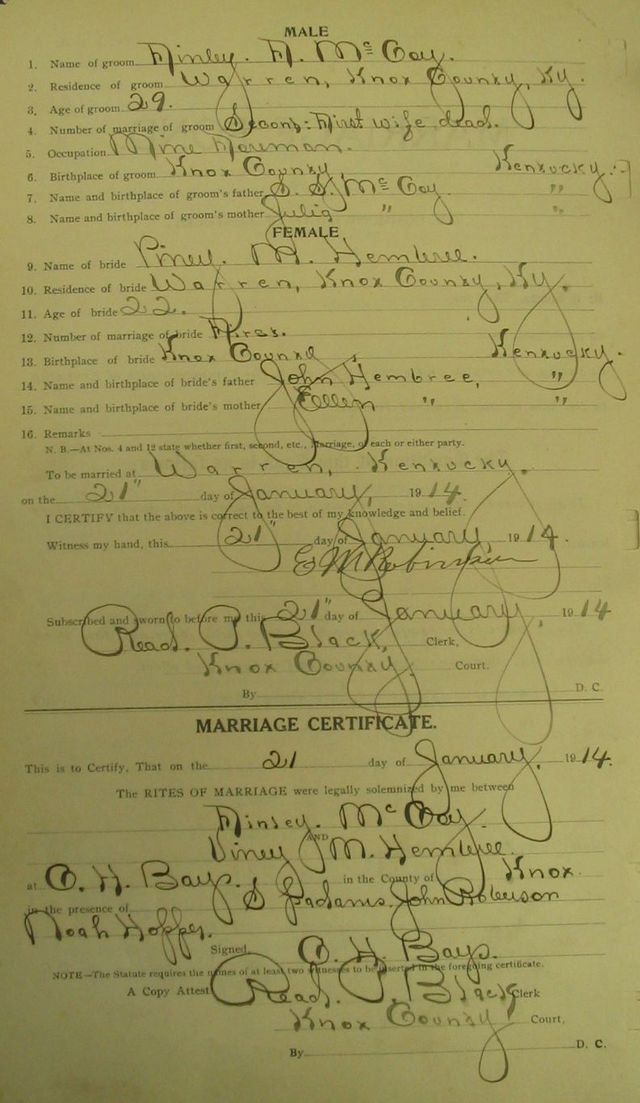 MALE
1. Name of groom Finley. A. McCoy.
2. Residence of groom Warren, Knox County, Ky.
3. Age of groom 29.
4. Number of marriage of groom Second: First wife dead.
5. Occupation Mine Foreman.
6. Birthplace of groom Knox County, Kentucky.
7. Name and birthplace of groom's father S. S. McCoy "
8. Name and birthplace of groom's mother Julia " "
FEMALE
9. Name of bride Viney. M. Hembree.
10. Residence of bride Warren, Knox County, Ky.
11. Age of bride 22.
12. Number of marriage of bride First.
13. Birthplace of bride Knox County, Kentucky.
14. Name and birthplace of bride's father John Hembree, "
15. Name and birthplace of bride's mother Ellen " "
16. Remarks
N. B.—At Nos. 4 and 12 state whether first, second, etc., marriage, of each or either party.
To be married at Warren, Kentucky,
on the 21" day of January, 1914.
I CERTIFY that the above is correct to the best of my knowledge and belief.
Witness my hand, this 21" day of January, 1914.
E M Robinson
Subscribed and sworn to before me this 21" day of January, 1914
Read. P. Black, Clerk,
Knox County Court.
By D. C.
MARRIAGE CERTIFICATE.
This is to Certify, That on the 21 day of January, 1914.
The RITES OF MARRIAGE were legally solemnized by me between
Finley. McCoy.
AND
Viney M. Hembree.
at C. H. Bays. in the County of Knox
in the presence of S John Roberson
Noah Hopper.
Signed, C. H. Bays.
NOTE—The Statute requires the names of at least two witnesses to be inserted in the foregoing certificate.
A Copy Attest Read. P. Black Clerk
Knox County Court,
By D. C.